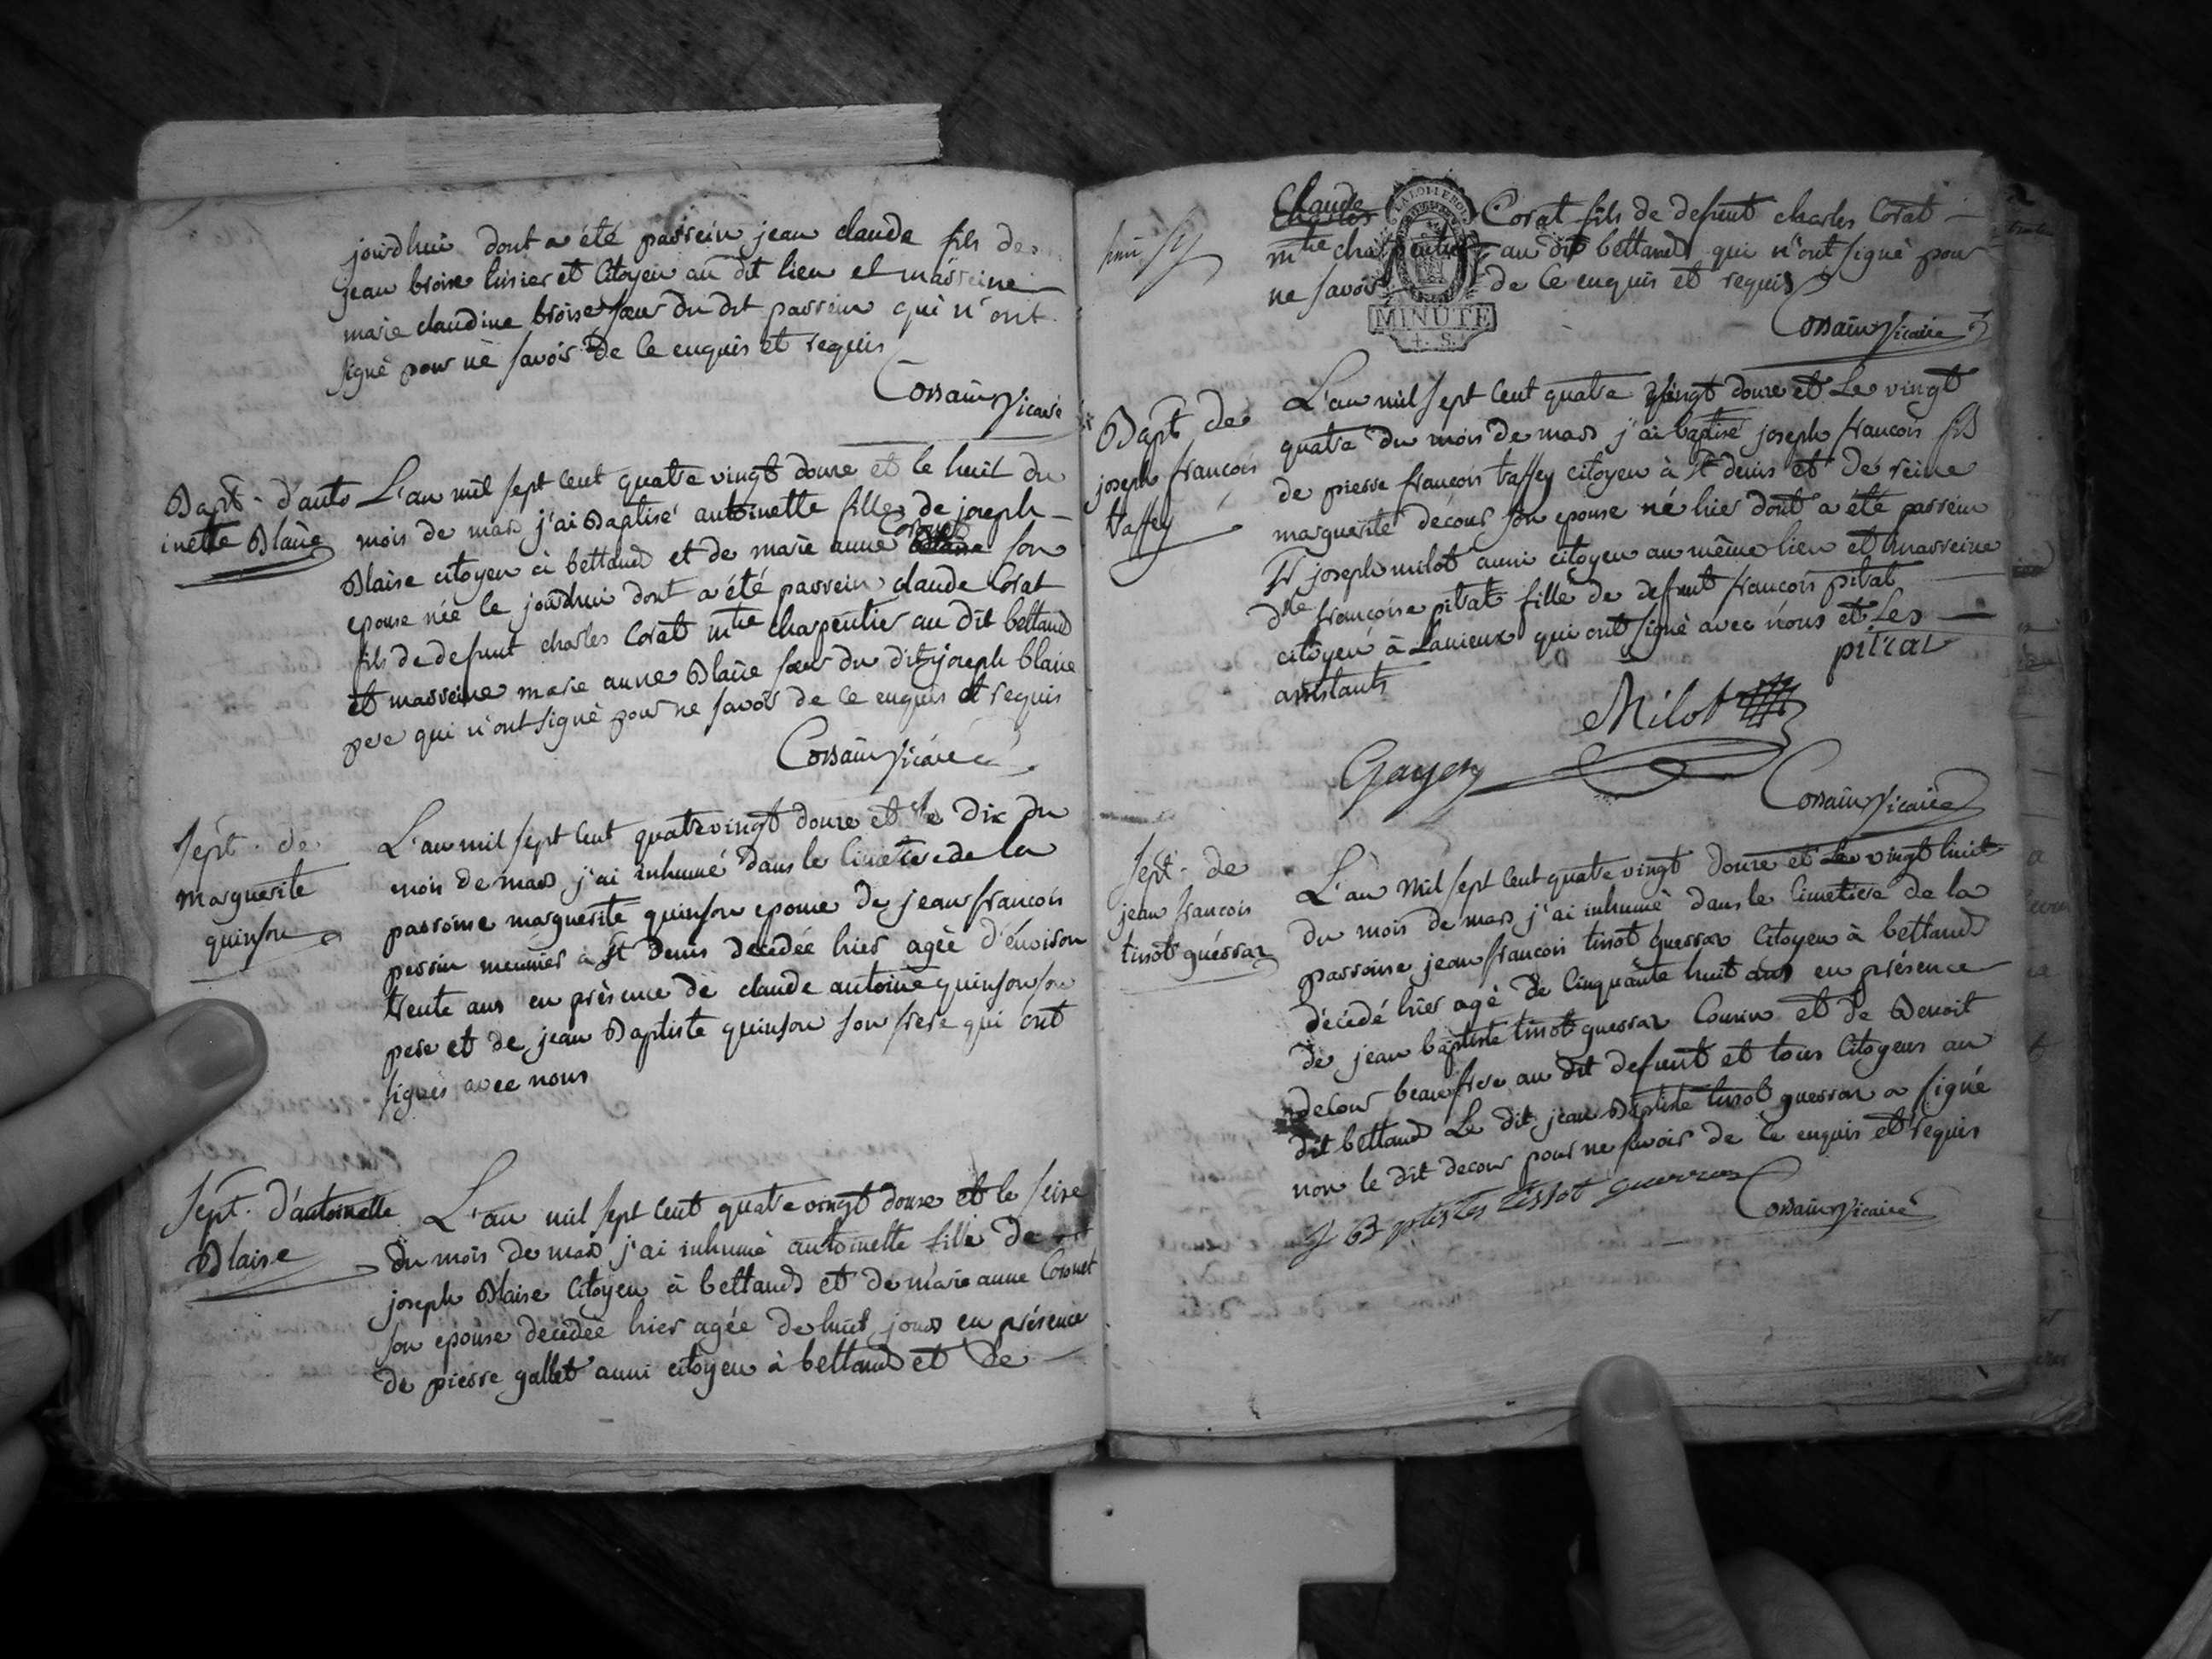 jourdhui dont a été parrein jean claude fils de
jean broise tuisier et Citoyen au dit lieu et marreine
marie claudine broise sœur du dit parrein qui n'ont
signé pour ne savoir de ce enquis et requis
Cossain vicaire
Bapt. d'anto
inette Blaise
L'an mil sept cent quatre vingt douze et le huit du
mois de mars j'ai Baptisé antoinette fille de joseph
Blaise citoyen à bettand et de marie anne Cornet son
epouse née le jourdhui dont a été parrein claude Corat
fils de defunt charles Corat mtre charpentier au dit bettand
et marreine marie anne Blaise sœur du dit joseph blaise
pere qui n'ont signé pour ne savoir de ce enquis et requis
Cossain vicaire
Sépt. de
marguerite
quinson
L'an mil sept cent quatre vingt douze et le dix du
mois de mars j'ai inhumé dans le cimetiere de la
parroisse marguerite quinson epouse de jean francois
perrin meunier à St denis decédée hier agée d'énviron
trente ans en présence de claude antoine quinson son
pere et de jean Baptiste quinson son frere qui ont
signés avec nous
Sépt. d'antoinette
Blaise
L'an mil sept cent quatre vingt douze et le seise
du mois de mars j'ai inhumé antoinette fille de
joseph Blaise Citoyen à bettand et de marie anne Cornet
son epouse decédée hier agée de huit jours en présence
de pierre gallet aussi citoyen à bettand et de
Claude Corat fils de defunt charles Corat
mtre charpentier au dit bettand qui n'ont signé pour
ne savoir de ce enquis et requis
MINUTE
4. S.
Cossain vicaire
Bapt de
joseph francois
taffey
L'an mil sept cent quatre vingt douze et le vingt
quatre du mois de mars j'ai baptisé joseph francois fils
de pierre francois taffey citoyen à St denis et de reine
marguerite décour son epouse né hier dont a été parrein
Sr joseph milot aussi citoyen au même lieu et marreine
dlle francoise pitrat fille de defunt francois pitrat
citoyen à Lanieux qui ont signé avec nous et les
assistants
pitrat
Milot
Gayen
Cossain vicaire
Sépt. de
jean francois
tissot guérraz
L'an mil sept cent quatre vingt douze et le vingt huit
du mois de mars j'ai inhumé dans le cimetiere de la
parroisse jean francois tissot guerraz Citoyen à bettand
décédé hier agé de Cinquante huit ans en présence
de jean baptiste tissot guerraz Cousin et de Benoit
decour beaufrere au dit defunt et tous Citoyens au
dit bettand Le dit jean Baptiste tissot guerraz a signé
non le dit decour pour ne savoir de ce enquis et requis
J Baptiste tissot guerraz
Cossain vicaire